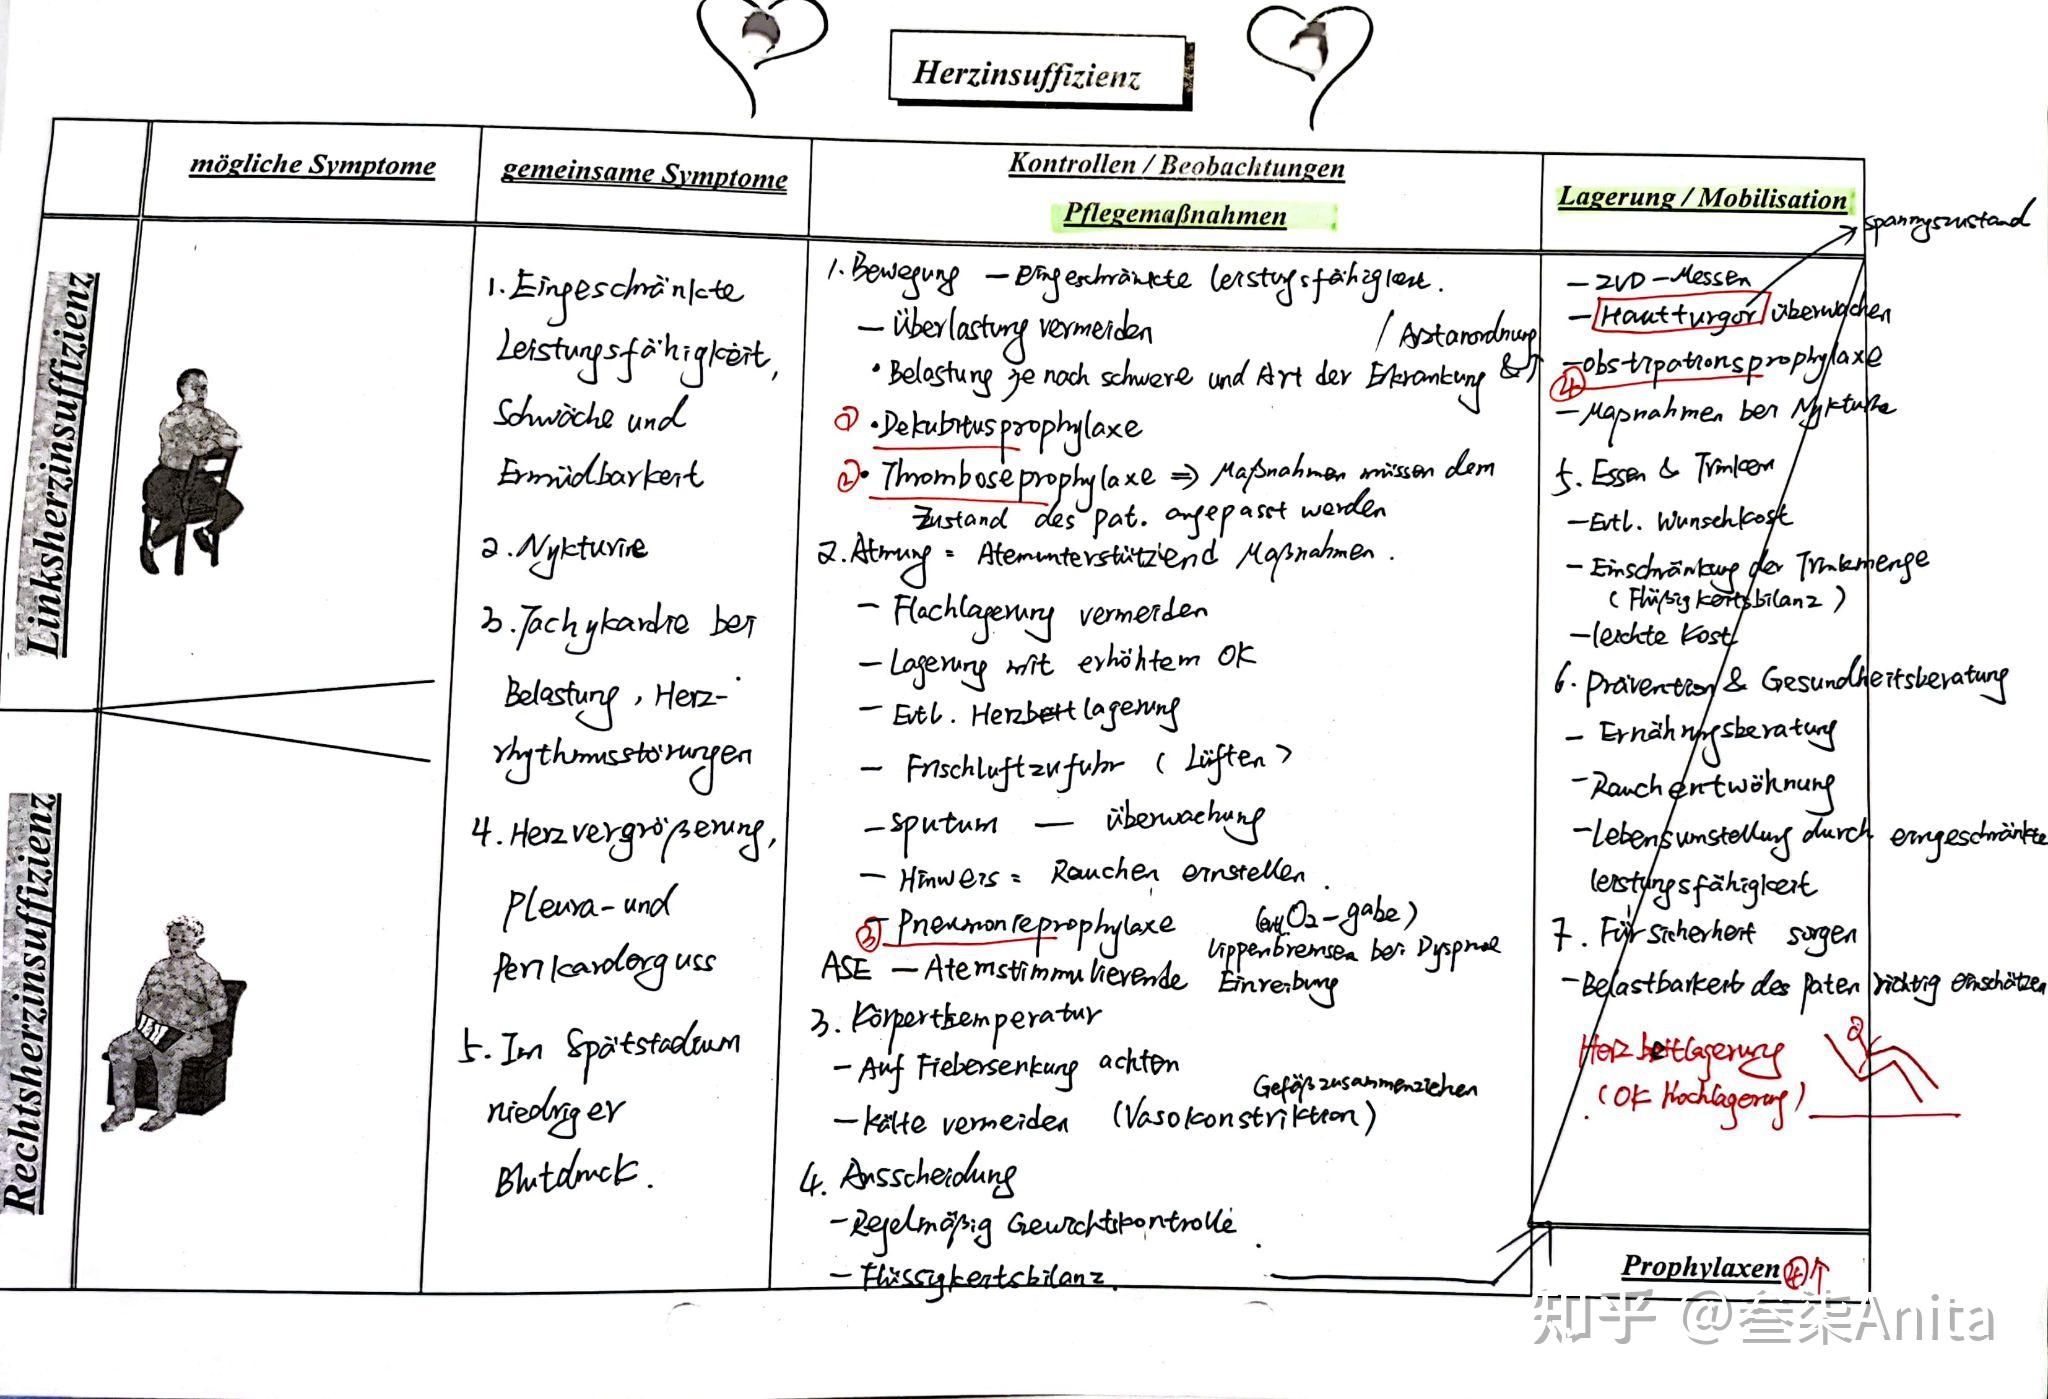 Herzinsuffizienz
mögliche Symptome
gemeinsame Symptome
Kontrollen / Beobachtungen
Pflegemaßnahmen
Lagerung / Mobilisation
spannungszustand
Linksherzinsuffizienz
Rechtsherzinsuffizienz
1. Eingeschränkte
Leistungsfähigkeit,
Schwäche und
Ermüdbarkeit
2. Nykturie
3. Tachykardie bei
Belastung, Herz-
rhythmusstörungen
4. Herzvergrößerung,
Pleura- und
Perikarderguss
5. Im Spätstadium
niedriger
Blutdruck.
1. Bewegung — Eingeschränkte leistungsfähigkeit.
— Überlastung vermeiden
/ Arztanordnung
• Belastung je nach schwere und Art der Erkrankung &
① • Dekubitusprophylaxe
② • Thromboseprophylaxe ⇒ Maßnahmen müssen dem
Zustand des Pat. angepasst werden
2. Atmung = Atemunterstützend Maßnahmen.
— Flachlagerung vermeiden
— Lagerung mit erhöhtem OK
— Evtl. Herzbettlagerung
— Frischluftzufuhr (Lüften)
— Sputum — überwachung
— Hinweis = Rauchen einstellen.
③ — Pneumonieprophylaxe (evtl O2-gabe)
Lippenbremsen bei Dyspnoe
ASE — Atemstimmulierende Einreibung
3. Körpertemperatur
— Auf Fiebersenkung achten
Gefäßzusammenziehen
— Kälte vermeiden (Vasokonstriktion)
4. Ausscheidung
— Regelmäßig Gewichtskontrolle
— Flüssigkeitsbilanz.
— ZVD-Messen
— Hautturgor überwachen
④ — obstipationsprophylaxe
— Maßnahmen bei Nykturie
5. Essen & Trinken
— Evtl. Wunschkost
— Einschränkung der Trinkmenge
(Flüßigkeitsbilanz)
— leichte Kost
6. Prävention & Gesundheitsberatung
— Ernährungsberatung
— Rauchentwöhnung
— Lebensumstellung durch eingeschränkte
leistungsfähigkeit
7. Für sicherheit sorgen
— Belastbarkeit des Paten richtig einschätzen
Herzbettlagerung
(OK Hochlagerung)
Prophylaxen ④↑
知乎 @叁柒Anita